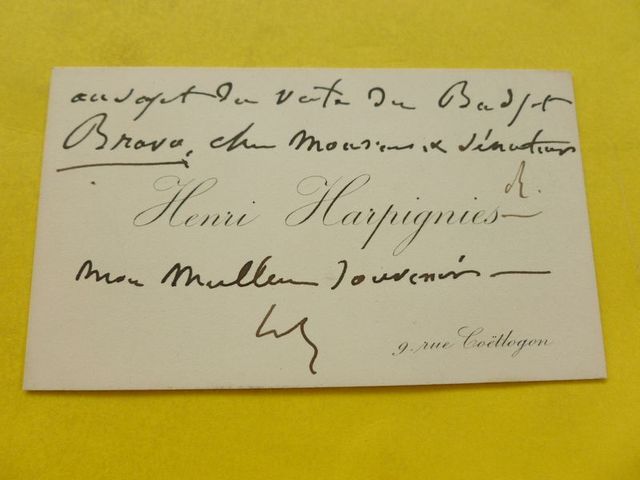 au sujet du vote du Budget
Bravo, cher Monsieur & Sénateur
Henri Harpignies
mon meilleur souvenir
9. rue Coëtlogon